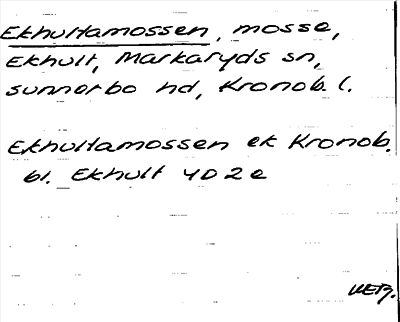 Ekhultamossen, mosse,
Ekhult, Markaryds sn,
Sunnerbo hd, Kronob. l.
Ekhultamossen ek Kronob.
bl. Ekhult 4D2e